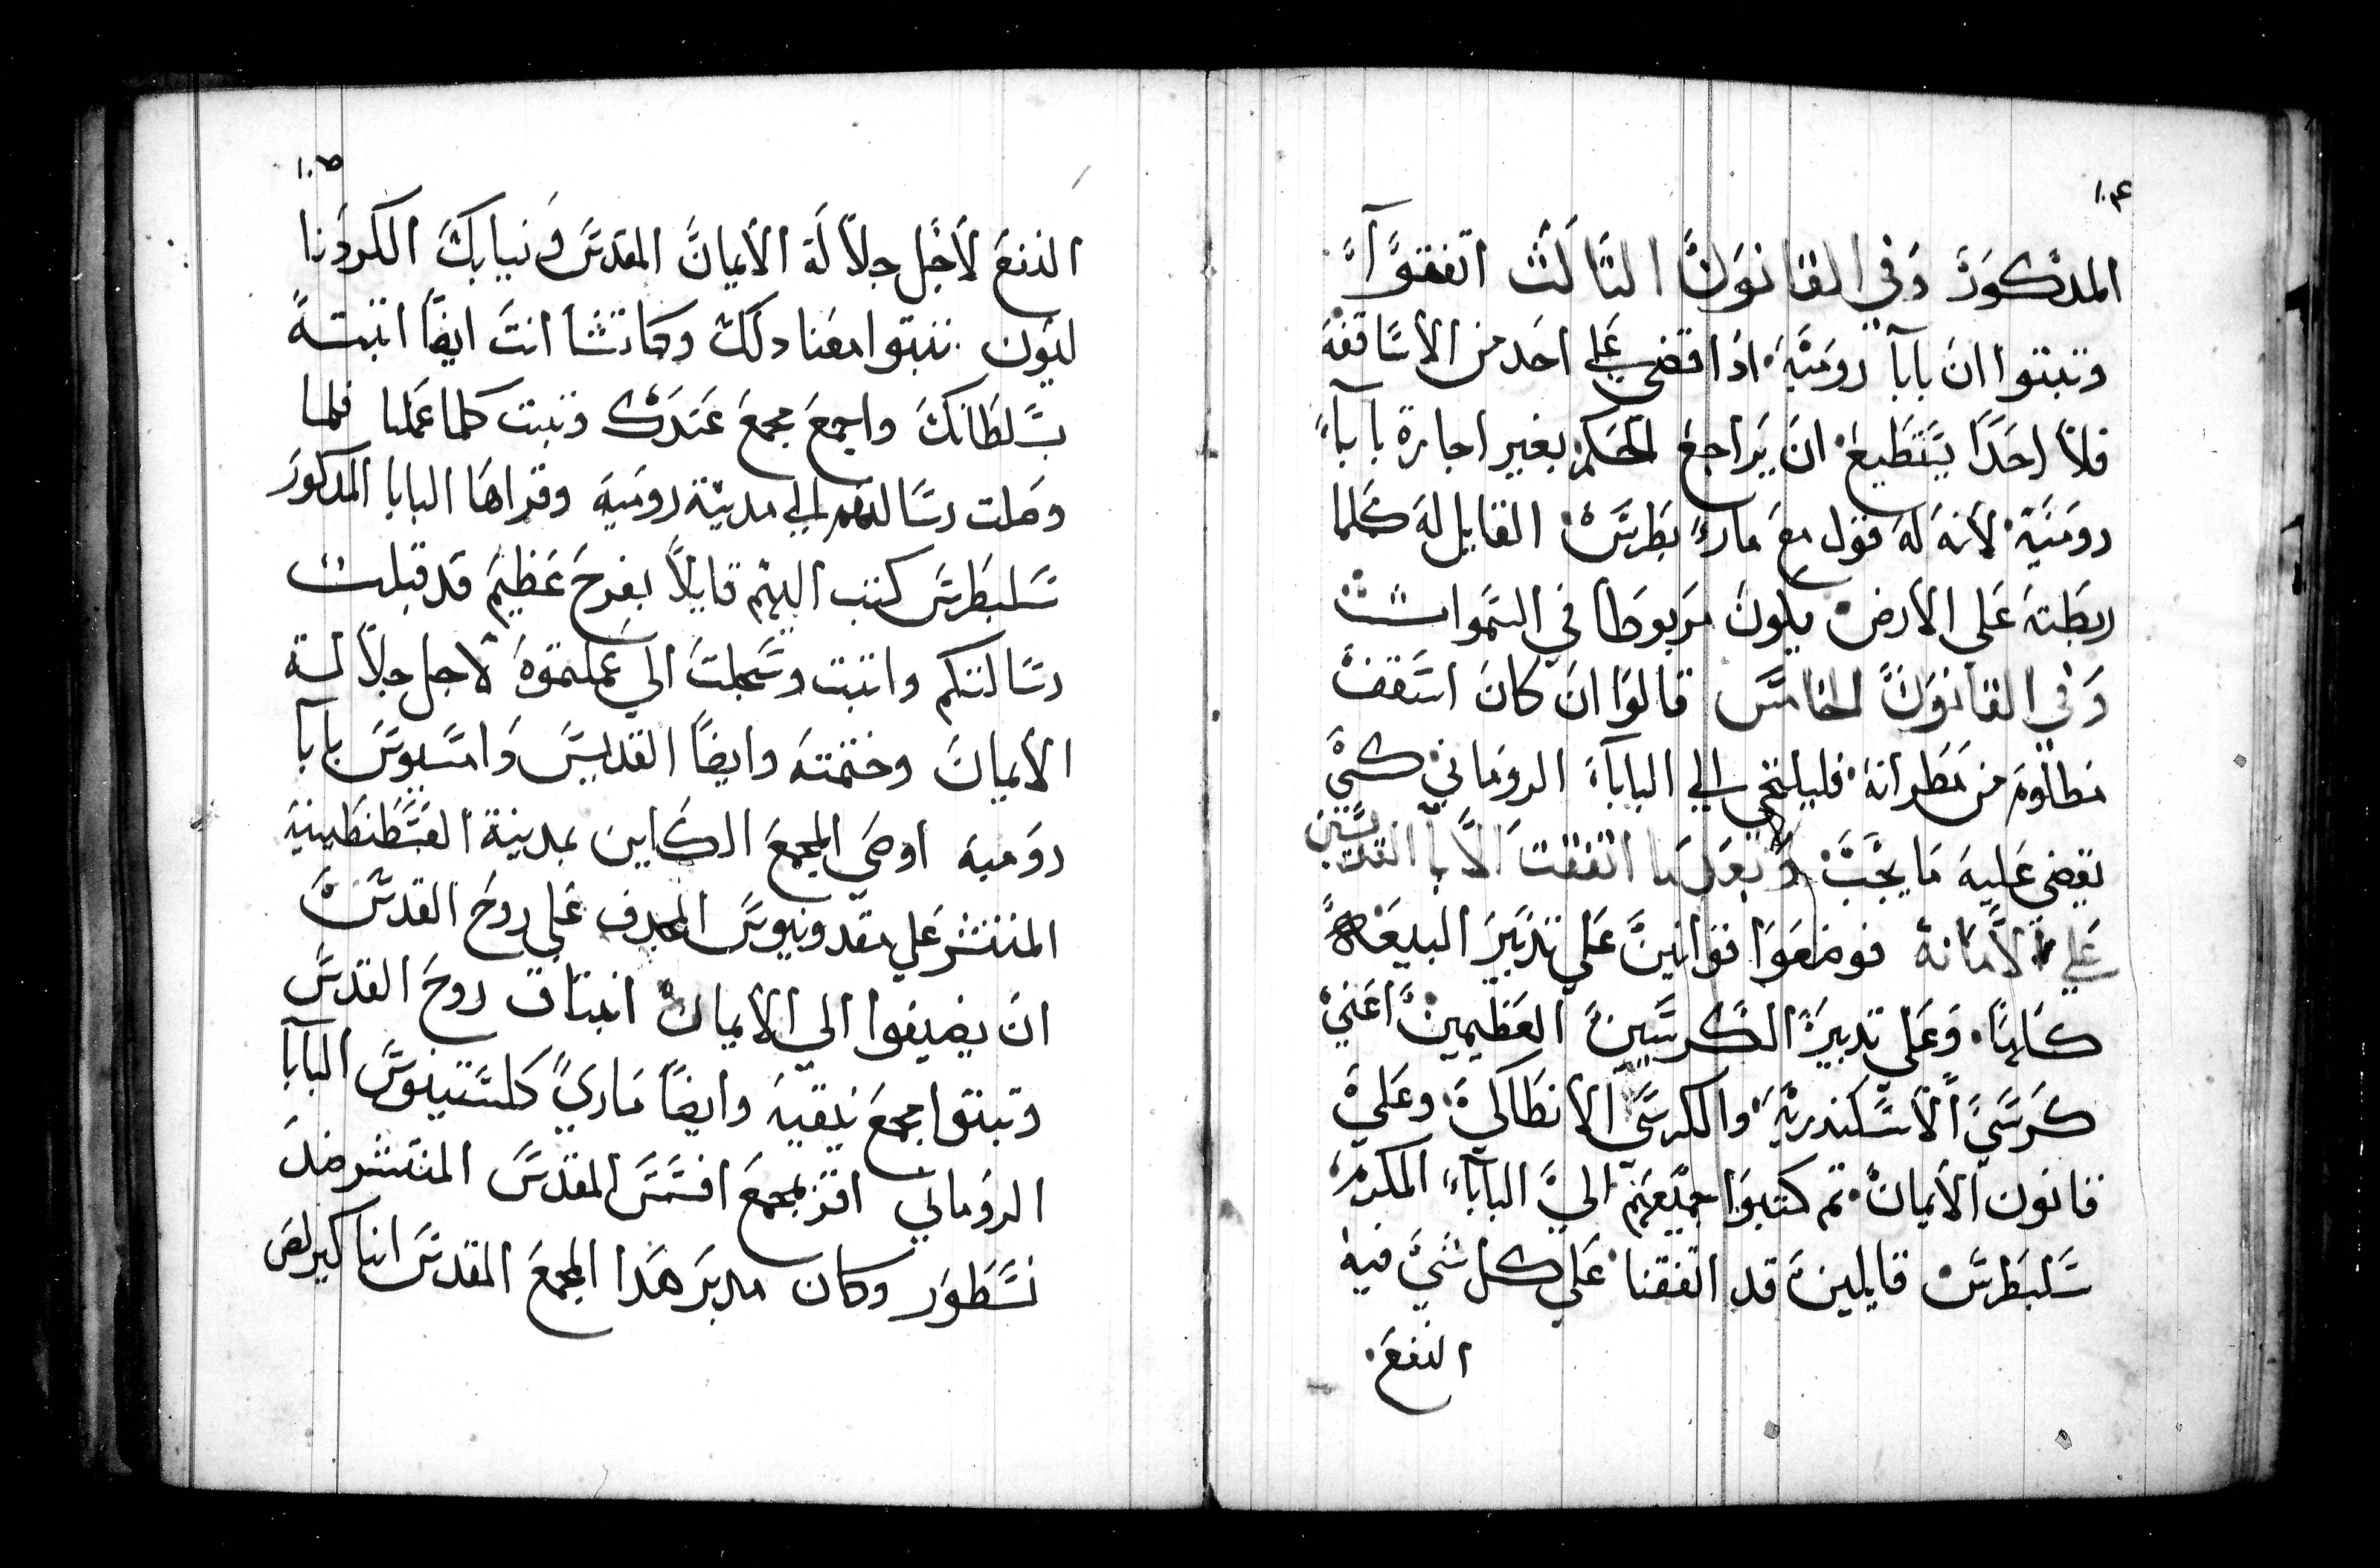 ١٠٤
المدكور وفي القانون التالت اتفقوا
وتبتوا ان بابا رومية ادا قضي علي احد من الاساقفه
فلا احدا يستطيع ان يراجع الحكم بغير اجازة باباء
رومية لانه له قول مع ماري بطرس القايل له كلما
ربطته على الارض يكون مربوطا في السموات
وفي القانون الخامس قالوا ان كان اسقف
مظلوم من مطرانه فليلتجي الي الباباء الروماني كي
يقضي عليه ما يجب وبعد ما اتفقت الابا القديسين
علي الامانة فوضعوا قوانين علي تدبير البيعه
كلها وعلي تدبير الكرسيين العظيمين اعني
كرسي الاسكندرية والكرسي الانطاكي وعلي
قانون الايمان تم كتبوا جميعهم الي الباباء المكرم
سلبطرس قايلين قد اتفقنا علي كل شي فيه
النفع
١٠٥
النفع لاجل جلالة الايمان المقدس ونيابك الكردونا
ليون تبتوا معنا دلك وكما تشا انت ايضا اتبته
بسلطانك واجمع مجمع عندك وتبت كلما عملنا فلما
وصلت رسالتهم الي مدينة رومية وقراها البابا المدكور
سلبطرس كتب اليهم قايلا بفرح عظيم قد قبلت
رسالتكم واتبت وسجلت الي عملتموه لاجل جلالة
الايمان وختمته وايضا القديس داماسيوس بابا
رومية اوصي المجمع الكاين بمدينة القسطنطينية
المنتشر علي مقدونيوس المجدف علي روح القدس
ان يضيفوا الي الايمان انبتاق روح القدس
وتبتوا مجمع نيقية وايضا ماري كلستينوس البابا
الروماني اقر بمجمع افسس المقدس المنتشر ضد
نسطور وكان مدبر هدا المجمع المقدس انبا كيرلص